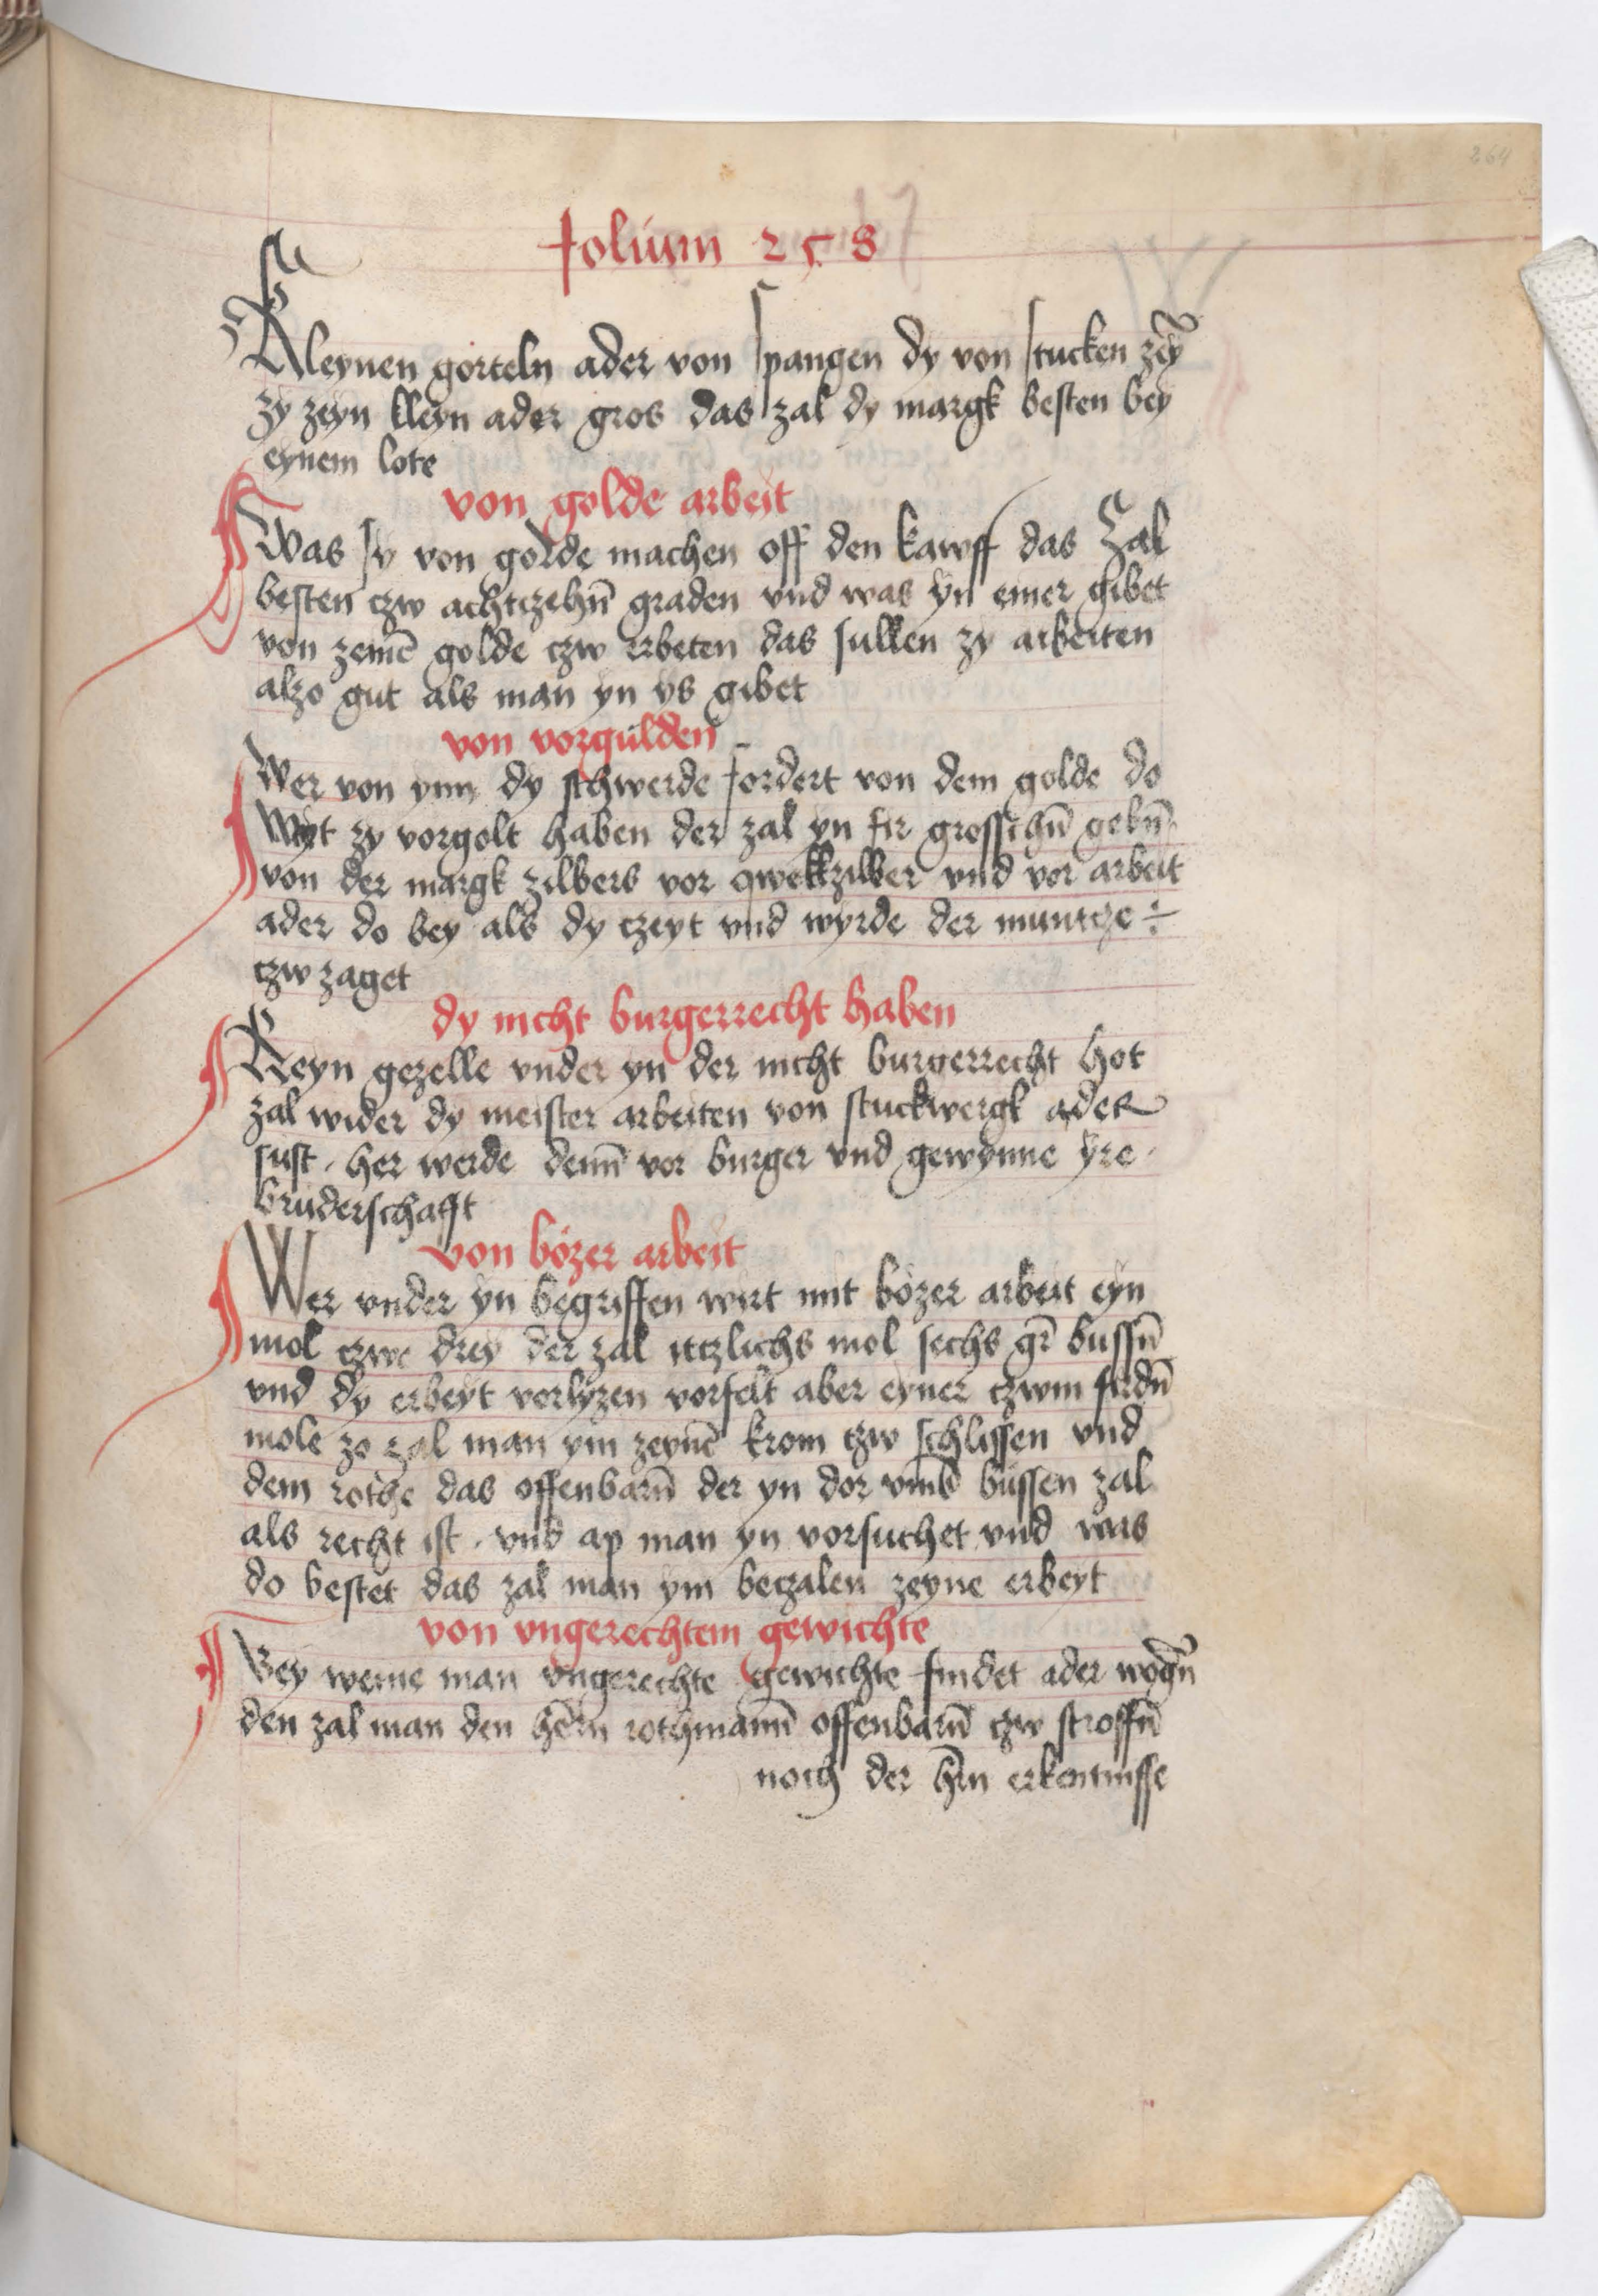 264
folium 258
Kleynen görteln ader von spangen dy von stucken zey̅
zy zeyn kleyn ader gros das zal dy margk besten bey
eynem lote
von golde arbeit
Was sy von golde machen off den kawff das Zal
besten czw achtczehn̅ graden vnd was yn einer gibet
von zeine̅ golde czw erbeten das sullen zy arbeiten
alzo gut als man yn ys gibet
von vorgulden
Wer von ynn dy schwerde fordert von dem golde do
Myt zy vorgolt haben der zal yn fir grosschn̅ gebn̅
von der margk zilbers vor qwekzilber vnd vor arbeit
ader do bey als dy czeyt vnd wyrde der muntcze ÷
czw zaget
dy nicht burgerrecht haben
Keyn gezelle vnder yn der nicht burgerrecht hot
zal wider dy meister arbeiten von stuckwergk ader
sust . her werde denn̅ vor burger vnd gewynne yre .
bruderschafft
von bözer arbeit
Wer vnder yn begriffen wirt mit bözer arbeit eyn
mol czwe drey der zal itczlichs mol sechs gr̅ bussn̅
vnd dy erbeyt vorlyzen vorfelt aber eyner czwm firdn̅
mole zo zal man ym zeyne̅ krom czw schlissen vnd
dem rothe das offenbarn̅ der yn dor vmb bussen zal
als recht ist . vnd ap man yn vorsuchet vnd was
do bestet das zal man ym beczalen zeyne erbeyt
von vngerechtem gewichte
Bey weme man vngerechte gewichte findet ader wogn̅
den zal man den he̅rn rothmann̅ offenbarn̅ czw stroffn̅
noch der hr̅n erkentnisse